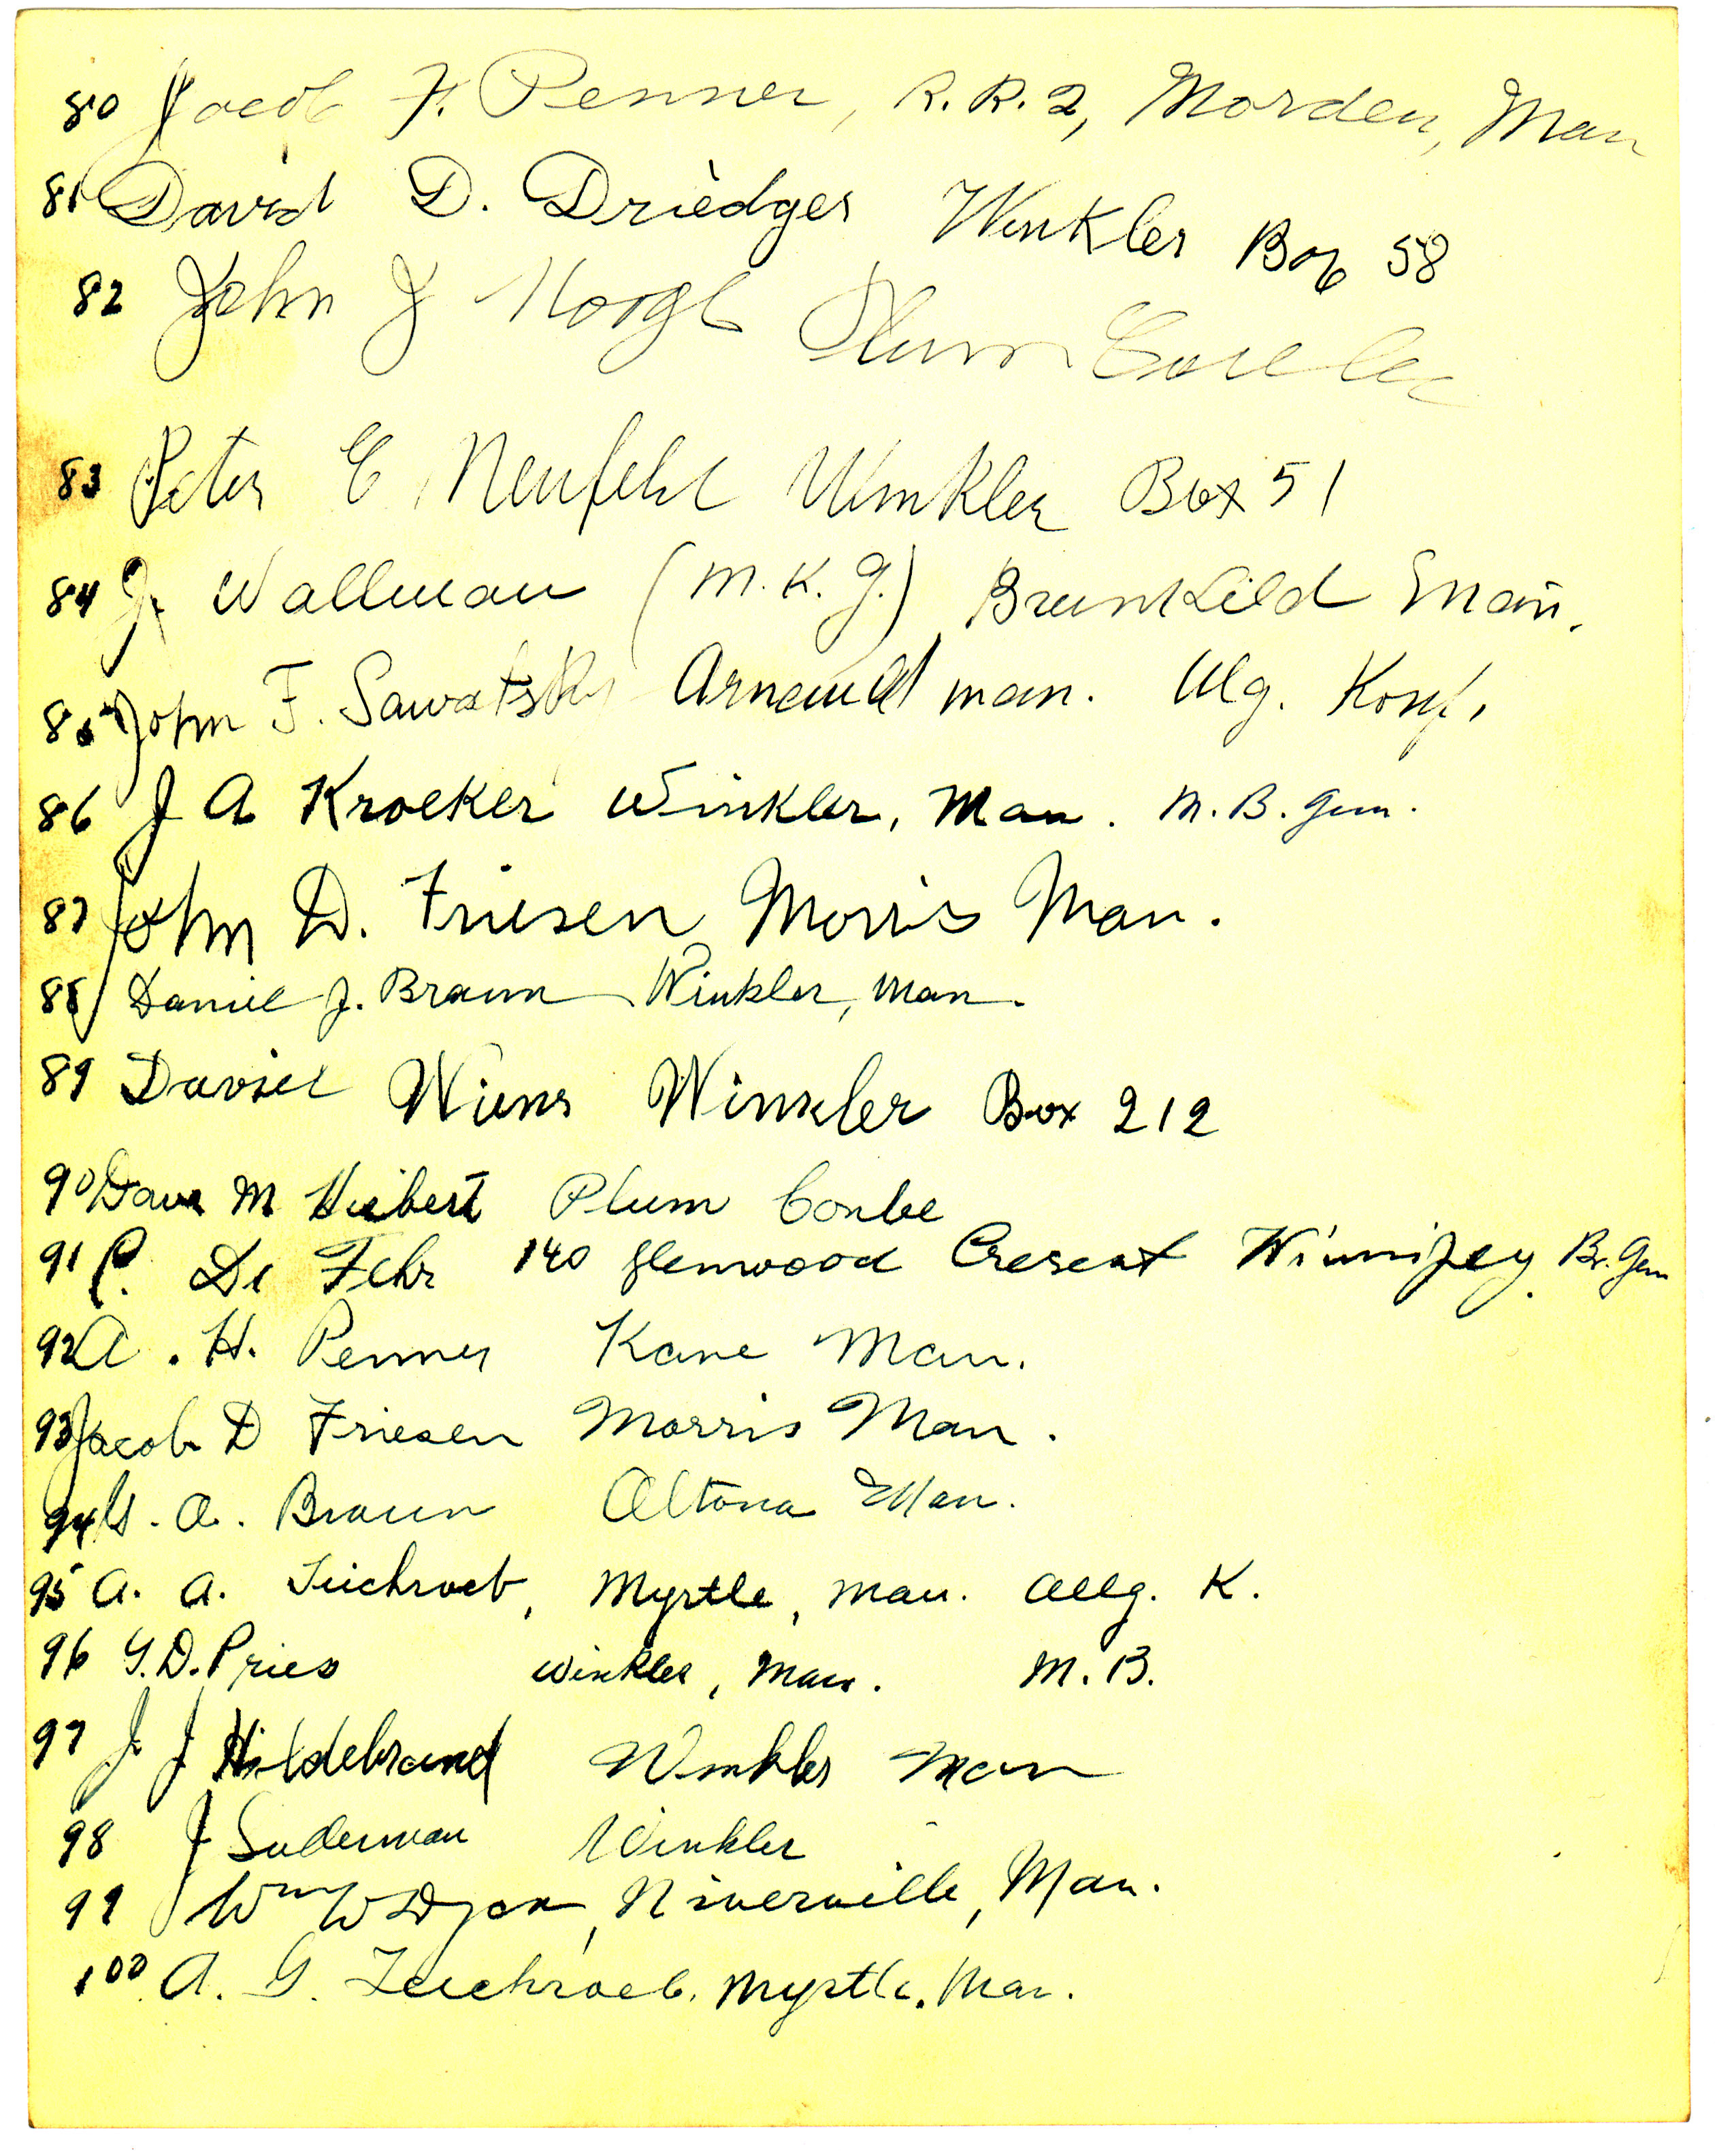 80 Jacob F. Penner, R.R.2, Morden, Man
81 David D. Driedger Winkler Box 58
82 John J Plum Coulee
83 Peter E Neufeld Winkler Box 51
84 J. Wallman (M.K.G.) Brunkild Man.
85 John F. Sawatsky Arnauld man. Alg. Konf.
86 J A Kroeker Winkler, Man. M.B. Gem.
87 John D. Friesen Morris Man.
88 Daniel J. Braun Winkler, Man.
89 Daniel Wiens Winkler Box 212
90 Dave M Hiebert Plum Coulee
91 C. De Fehr 140 Glenwood Cresent Winnipeg. Br. Gem
92 A. H. Penner Kane Man.
93 Jacob D Friesen Morris Man.
94 A. Braun Altona Man.
95 A. A. Teichroeb, Myrtle, Man. Allg. K.
96 G.D. Pries Winkler, Man. M.B.
97 J J Hildebrand Winkler Man
98 J Suderman Winkler
99 Wm W Dyck, Niverville, Man.
100 A. G. Teichroeb. Myrtle. Man.